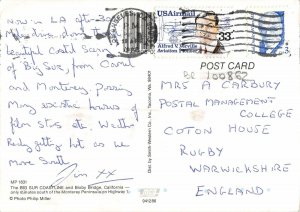 NOW in L.A after 300
Miles down the
beautiful coastal scenery
of Big Sur, from Carmel
and Monterey. Passing
Many exotic houses of
film stars etc. Weather
Really getting hot as we
move South
Jim xx
MP 1631
The BIG SUR COASTLINE and Bixby Bridge, California —
only 20 minutes south of the Monterey Peninsula on Highway 1.
© Photo Philip Miller
941288
Dist. by Smith-Western Co. Inc. Tacoma, Wa. 98401
USAirmail
33
Alfred V. Verville
Aviation Pioneer
POST CARD
BC 100852
MRS A CARBURY
POSTAL MANAGEMENT
COLLEGE
COTON HOUSE
RUGBY
WARWICKSHIRE
ENGLAND